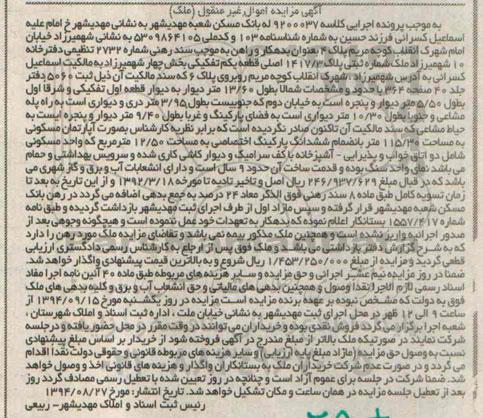 آگهی مزایده اموال غیر منقول (ملک)
به موجب پرونده اجرایی کلاسه ۹۲۰۰۰۳۷ له بانک مسکن شعبه مهدیشهر به نشانی مهدیشهر خ امام علیه
اسماعیل کسرائی فرزند حسین به شماره شناسنامه ۱۰۳ و کدملی ۵۳۰۹۸۶۴۱۰۵ به نشانی مهدیشهرزاد خیابان
امام شهرک انقلاب کوچه مریم پلاک ۴ بعنوان بدهکار و راهن به موجب سند رهنی شماره ۲۷۳۲ تنظیمی دفترخانه
۱۰ شهمیرزاد ملک شماره ثبتی پلاک ۱۴۱۷/۳ اصلی قطعه یکم تفکیکی بخش چهار شهمیرزاد به مالکیت اسماعیل
کسرائی به آدرس شهمیرزاد، شهرک انقلاب کوچه مریم روبروی پلاک ۶ که سند مالکیت آن ذیل ثبت ۵۰۶۰ دفتر
جلد ۴۰ صفحه ۳۶۴ با حدود و مشخصات شمالا بطول ۱۳/۶۰ متر دیوار به دیوار قطعه اول تفکیکی و شرقا اول
بطول ۵/۵۰ متر دیوار و پنجره است به خیابان دوم که جنوبیست بطول ۳/۹۵ متر دری و دیواری است به راه پله
مشاعی و جنوبا بطول ۱۰/۳۰ متر دیواری است به فضای پارکینگ و غربا بطول ۹/۴۰ متر دیوار و پنجره ایست به
حیاط مشاعی که سند مالکیت آن تاکنون صادر نگردیده است که برابر نظریه کارشناس بصورت آپارتمان مسکونی
به مساحت ۱۱۵/۳۰ متر بانضمام ششدانگ پارکینگ اختصاصی به مساحت ۱۲/۵۰ مترمربع که واحد مسکونی
شامل دو اتاق خواب و پذیرایی - آشپزخانه با کف سرامیک و دیوار کاشی کاری شده و سرویس بهداشتی و حمام
می باشد نمای واحد سنگ بوده و قدمت ساخت آن حدود ۹ سال است و دارای انشعابات آب و برق و گاز شهری می
باشد که در قبال مبلغ ۲۴۶/۹۳۷/۶۲۹ ریال اصل و تاخیر تادیه تا مورخه ۱۳۹۲/۳/۱۸ و از این تاریخ به بعد تا
زمان تسویه کامل طبق ماده ۸ سند رهنی فوق الذکر معاد ۲۴ درصد به جمع بدهی اضافه می گردد در رهن بانک
مسکن شعبه مهدیشهر قرار گرفته و سپس مازاد اول از طرف اجرای ثبت مهدیشهر بازداشت گردیده و طبق نامه
شماره ۱۵۵۷/۴۱۷ بستانکار اعلام نموده که بدهکار به تعهدات خود عمل ننموده است و هیچگونه وجوهی بعد از
صدور اجرائیه واریز نشده است و همچنین ملک مذکور بیمه نمی باشد و تقاضای مزایده ملک مورد رهن را دارد
که به شرح گزارش دفتر بازداشتی می باشد و ملک فوق پس از ارجاع به کارشناس رسمی دادگستری ارزیابی
قطعی گردید و مزایده از مبلغ ۱/۴۵۳/۲۵۰/۰۰۰ ریال شروع و به بالاترین قیمت پیشنهادی واگذار خواهد شد.
ضمنا در روز مزایده نیم عشر اجرائی و حق مزایده و سایر هزینه های مربوطه طبق ماده ۴۰ آئین نامه اجرا مفاد
اسناد رسمی لازم الاجرا نقدا وصول و همچنین بدهی های مالیاتی و حق انشعاب آب و برق و کلیه بدهی های ملک
فوق به دولت که مشخص نبوده بر عهده برنده مزایده است. مزایده در روز یکشنبه مورخ ۱۳۹۴/۰۹/۱۵ از
ساعت ۹ الی ۱۲ ظهر در محل اجرای ثبت مهدیشهر به نشانی خیابان ملت، اداره ثبت اسناد و املاک شهرستان،
شعبه اجرا برگزار می گردد فروش نقدی بوده و خریداران می توانند در وقت مقرر در محل حضور یافته و درجلسه
شرکت نمایند در صورتیکه ملک بالاتر از مبلغ مندرج در آگهی فروخته شود از خریدار بر اساس مبلغ پیشنهادی
نسبت به وصول حق مزایده (مازاد مبلغ پایه ارزیابی) و سایر هزینه های مربوطه قانونی و حقوقی دولت نقدا اقدام
می گردد و در صورت عدم شرکت خریداران ملک به بستانکاران واگذار و هزینه های قانونی اخذ و وصول خواهد
شد. ضمنا شرکت در جلسه برای عموم آزاد است و چنانچه در روز تعیین شده با تعطیل رسمی مصادف گردد روز
بعد از تعطیل جلسه مزایده در همان ساعت و مکان تشکیل خواهد شد. تاریخ انتشار: مورخ ۱۳۹۴/۰۸/۲۷
رئیس ثبت اسناد و املاک مهدیشهر- ربیعی